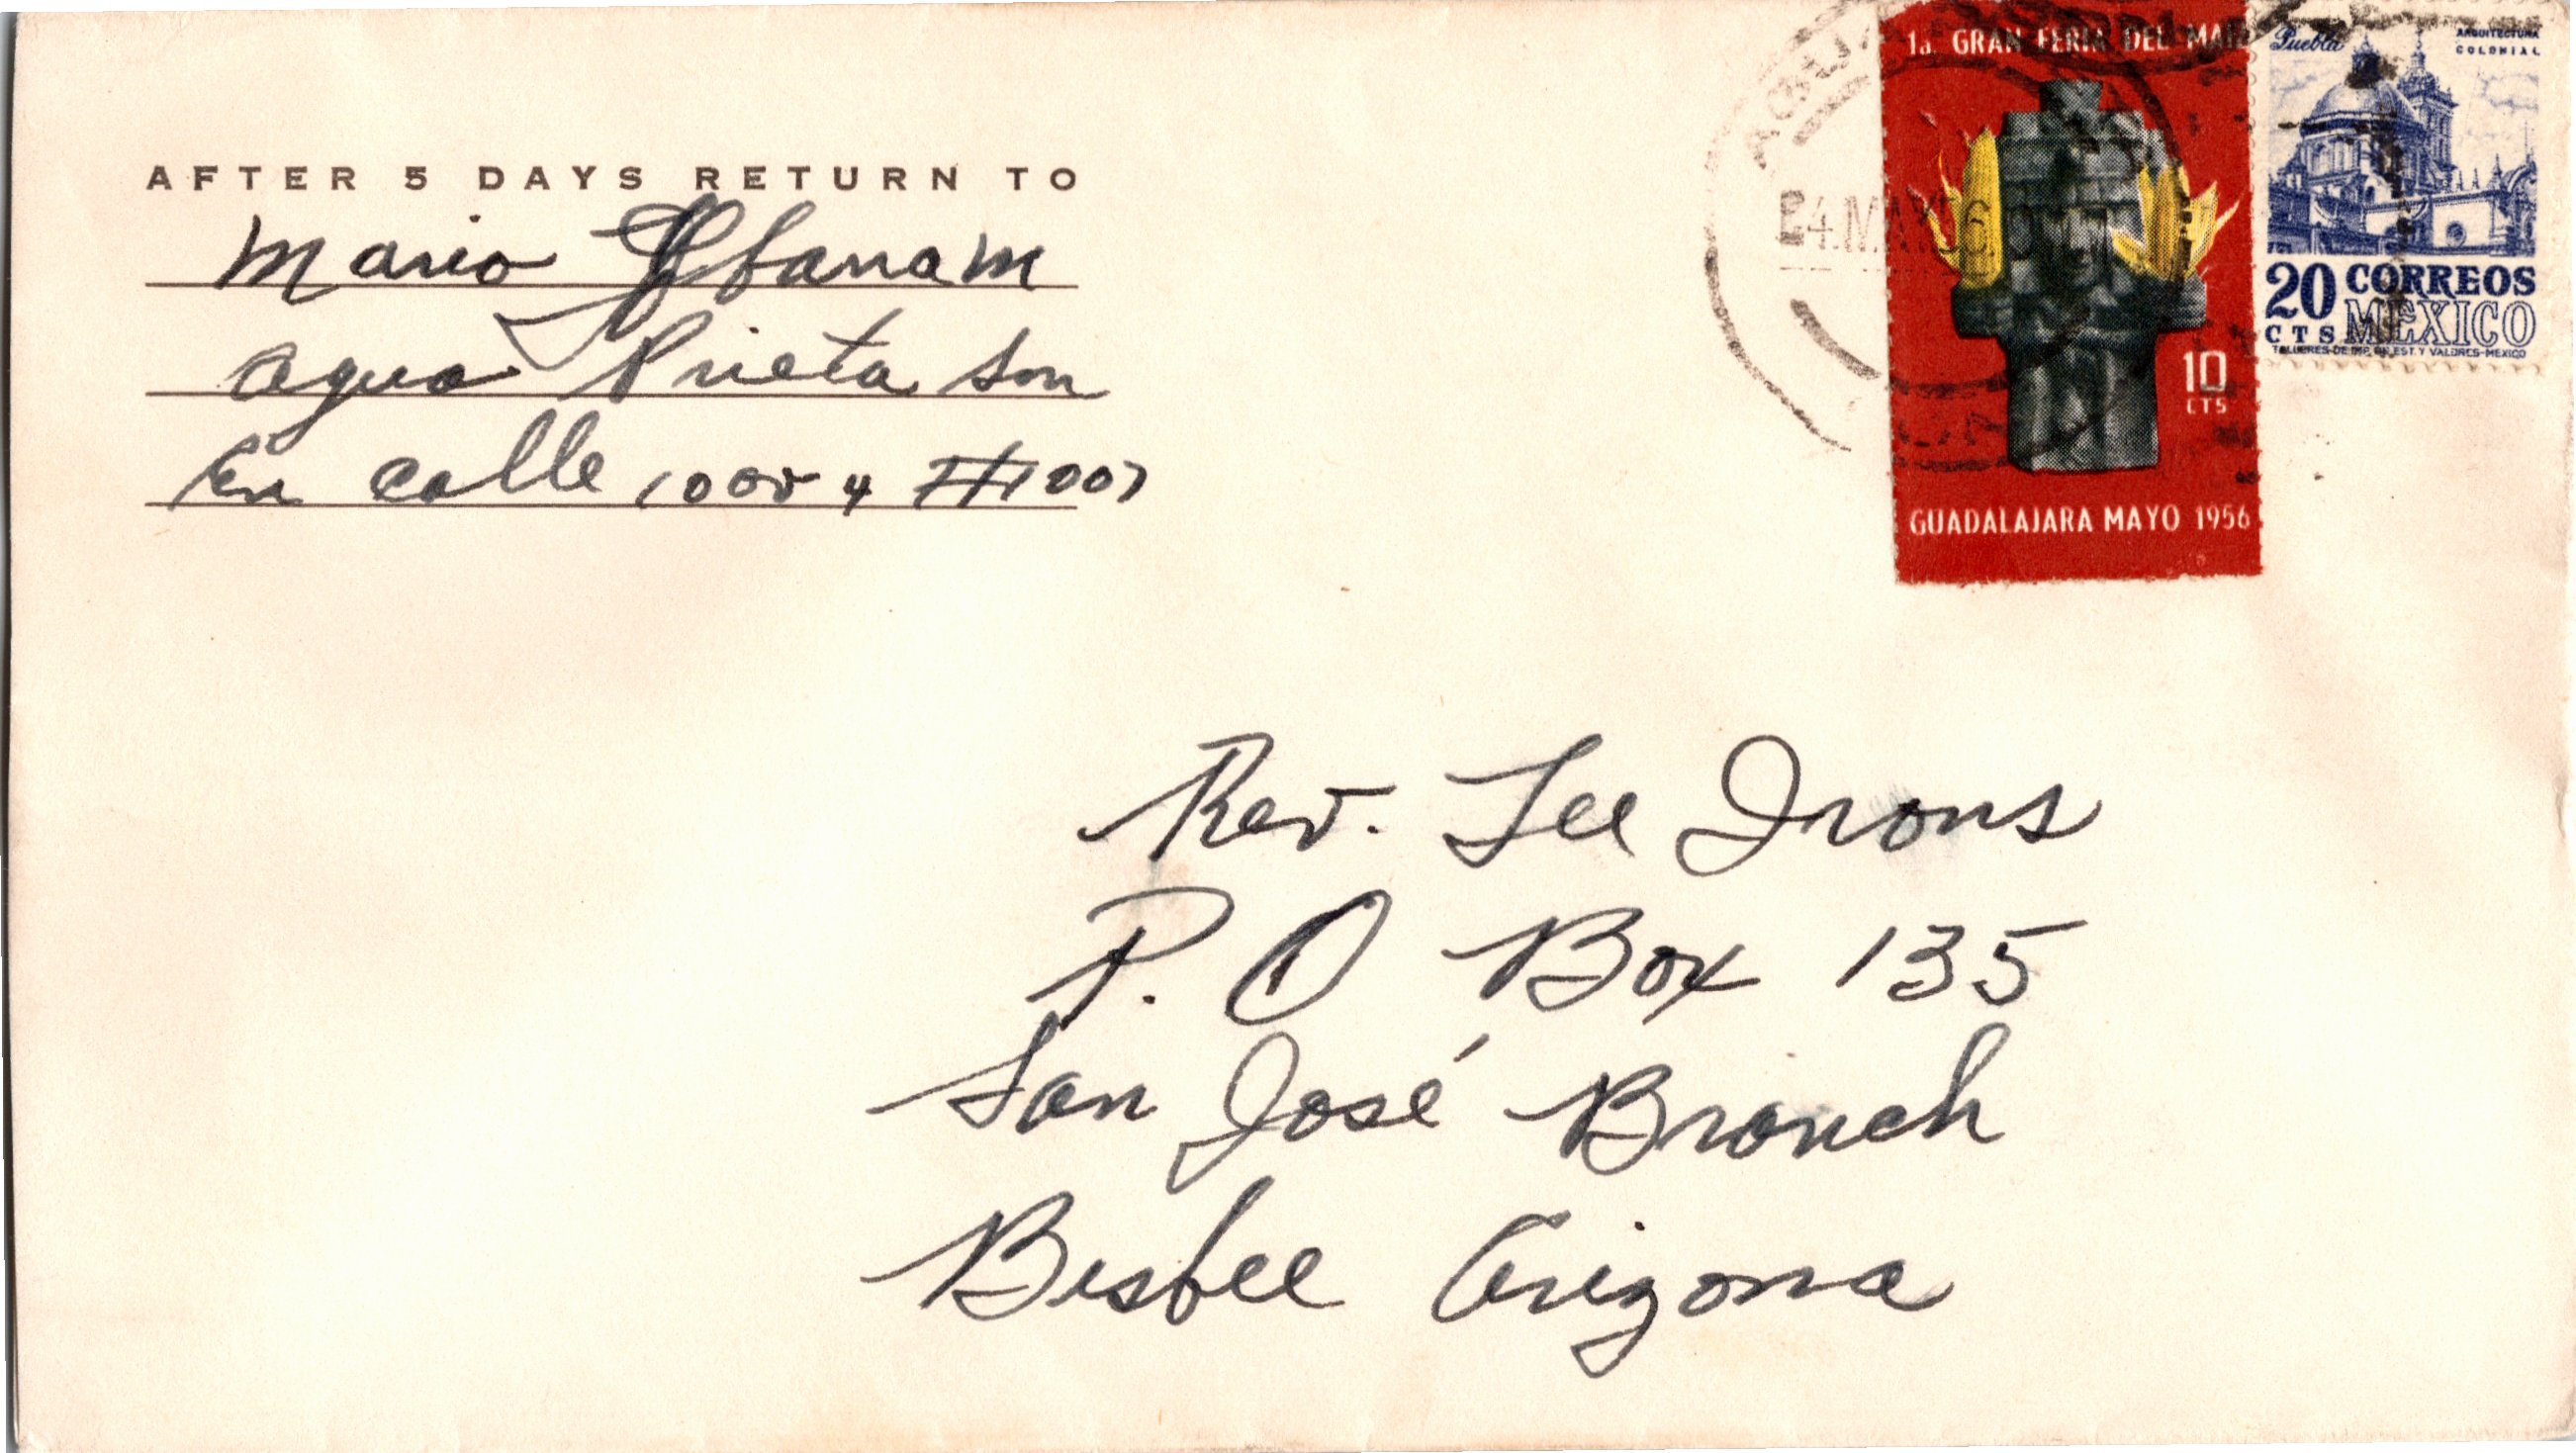 AFTER 5 DAYS RETURN TO
Mario
Agua Prieta Son
En calle
1a. GRAN FERIA DEL
10
CTS
GUADALAJARA MAYO 1956
Puebla
ARQUITECTURA
COLONIAL
20 CORREOS
CTS MEXICO
TALLERES DE IMP. DE EST. Y VALORES-MEXICO
Rev. Lee Irons
P. O Box 135
San José Branch
Bisbee Arizona